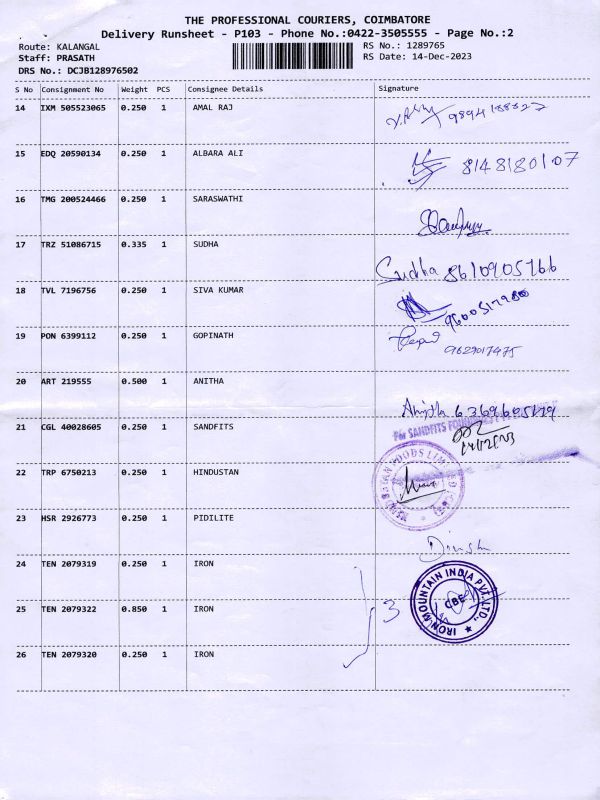 THE PROFESSIONAL COURIERS, COIMBATORE
Delivery Runsheet - P103 - Phone No.:0422-3505555 - Page No.:2
Route: KALANGAL RS No.: 1289765
Staff: PRASATH RS Date: 14-Dec-2023
DRS No.: DCJB128976502
S No Consignment No Weight PCS Consignee Details Signature
14 IXM 505523065 0.250 1 AMAL RAJ
15 EDQ 20590134 0.250 1 ALBARA ALI 8148180107
16 TMG 200524466 0.250 1 SARASWATHI
17 TRZ 51086715 0.335 1 SUDHA Sudha 8610905766
18 TVL 7196756 0.250 1 SIVA KUMAR
19 PON 6399112 0.250 1 GOPINATH 9629017475
20 ART 219555 0.500 1 ANITHA Anitha
21 CGL 40028605 0.250 1 SANDFITS For SANDFITS
14/12/23
22 TRP 6750213 0.250 1 HINDUSTAN FOODS LIMITED
23 HSR 2926773 0.250 1 PIDILITE Dinesh
24 TEN 2079319 0.250 1 IRON
25 TEN 2079322 0.850 1 IRON 3 IRON MOUNTAIN INDIA PVT. LTD., CBE
26 TEN 2079320 0.250 1 IRON